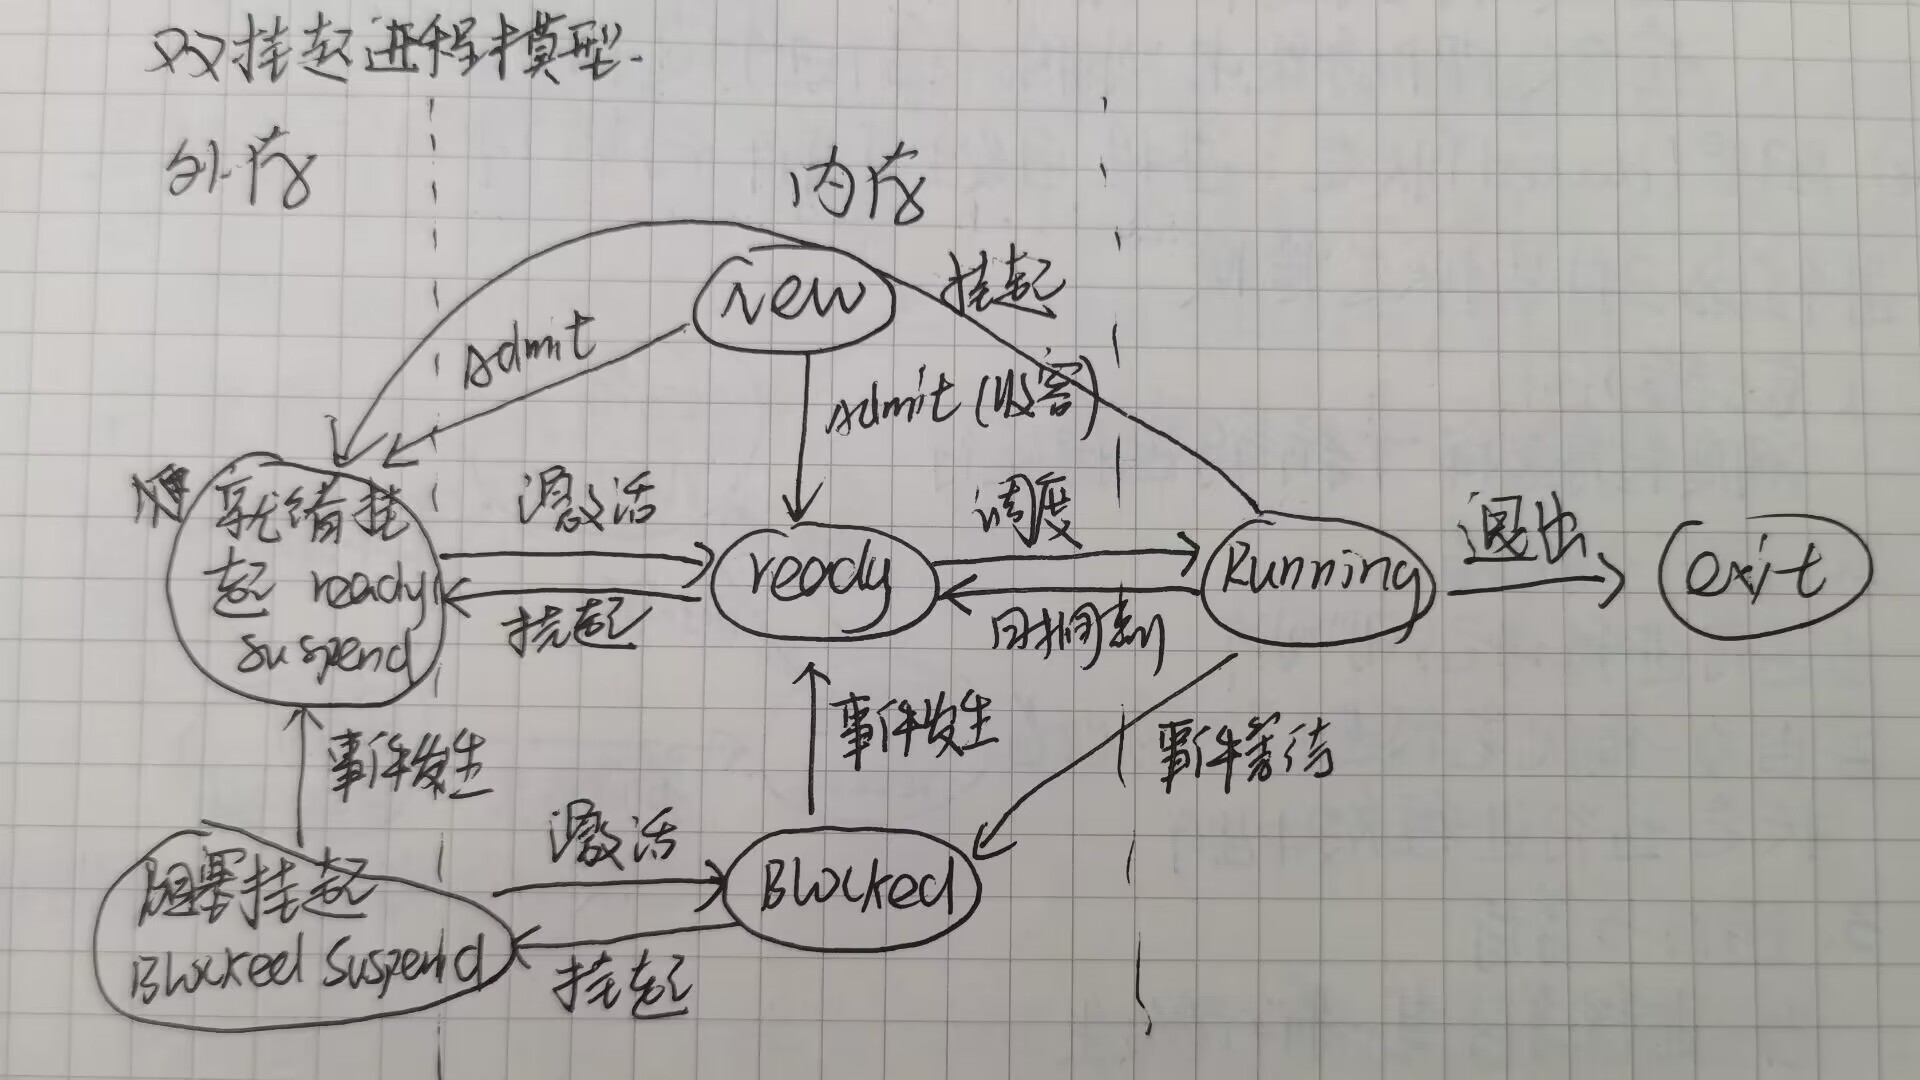 双挂起进程模型.
外存
内存
new
挂起
Admit
Admit (收容)
就绪挂
起 ready
suspend
激活
挂起
ready
调度
时间到
Running
退出
exit
事件发生
事件发生
事件等待
阻塞挂起
Blocked Suspend
激活
挂起
Blocked